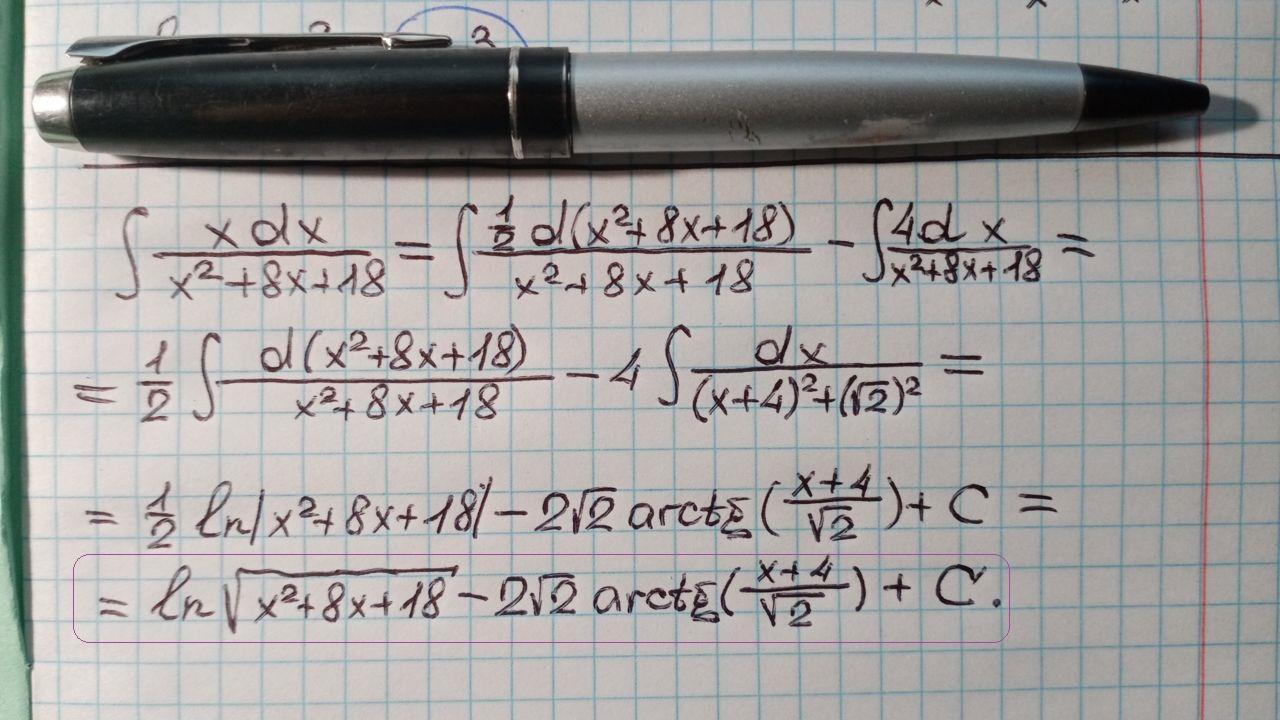 ∫ x dx / (x² + 8x + 18) = ∫ ½ d(x² + 8x + 18) / (x² + 8x + 18) − ∫ 4 dx / (x² + 8x + 18) =
= ½ ∫ d(x² + 8x + 18) / (x² + 8x + 18) − 4 ∫ dx / ((x + 4)² + (√2)²) =
= ½ ln|x² + 8x + 18| − 2√2 arctg((x + 4) / √2) + C =
= ln √(x² + 8x + 18) − 2√2 arctg((x + 4) / √2) + C.